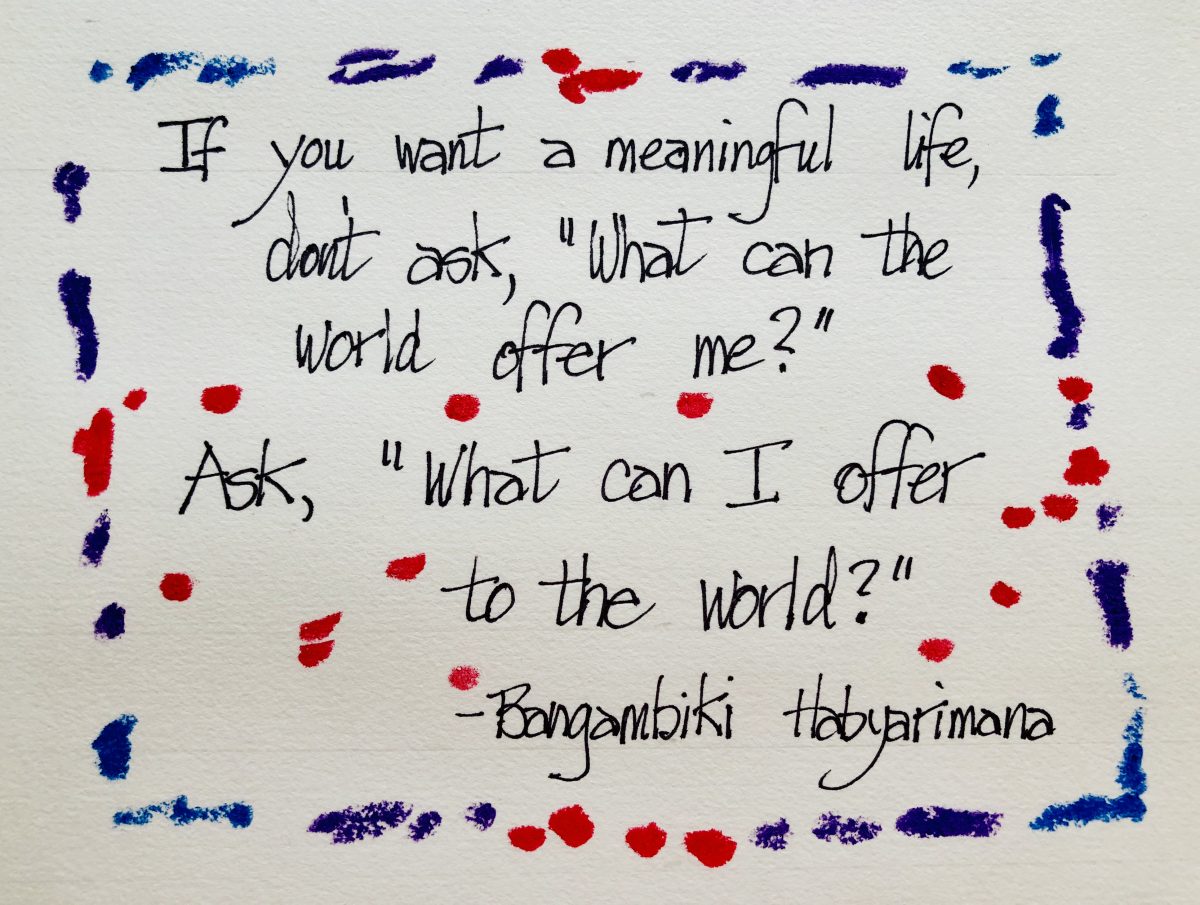 If you want a meaningful life,
don't ask, "What can the
world offer me?"
Ask, "What can I offer
to the world?"
-Bangambiki Habyarimana